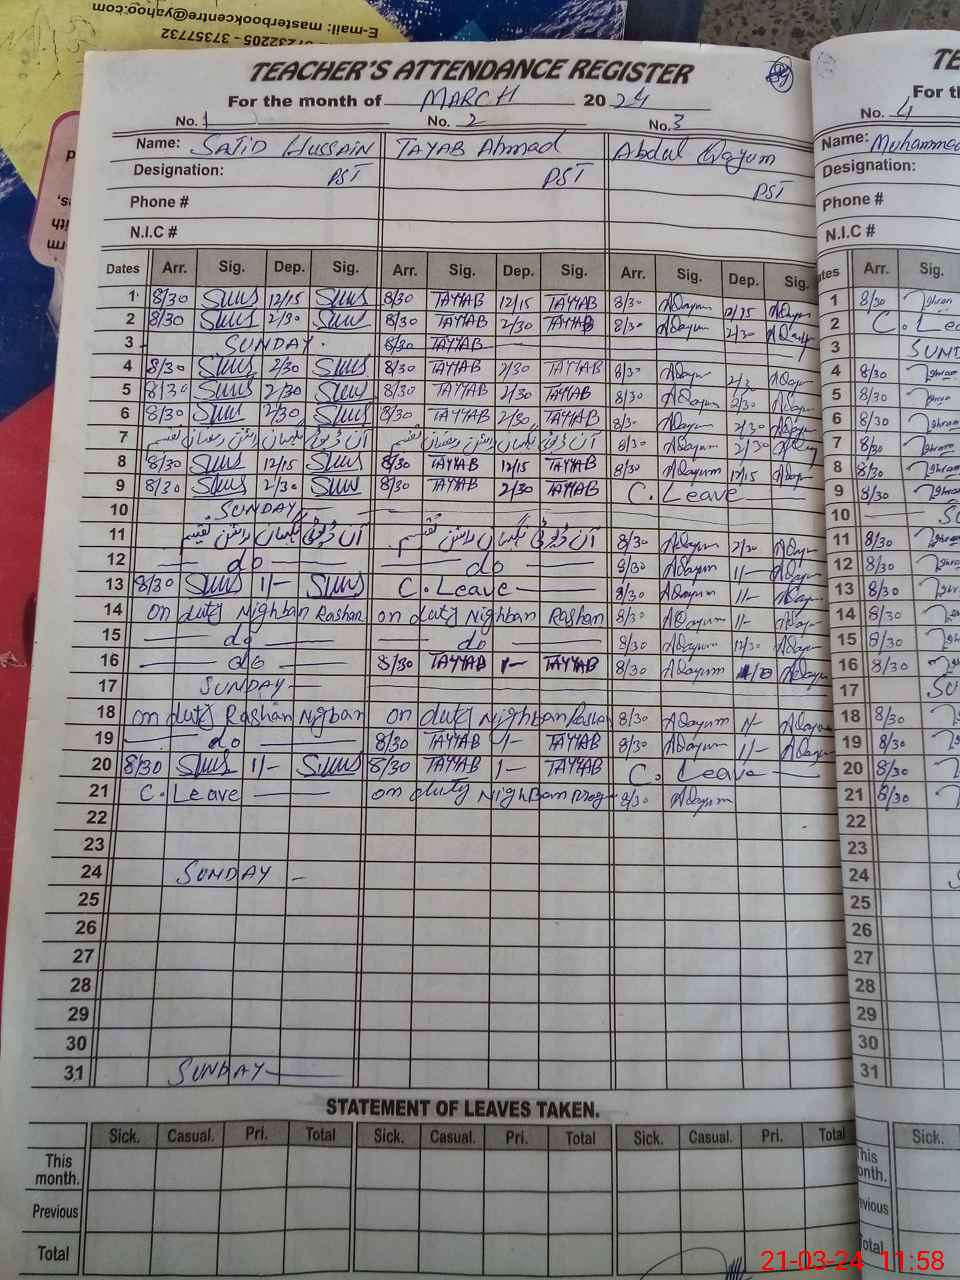 E-mail: masterbookcentre@yahoo.com
37232205 - 37357732
TEACHER'S ATTENDANCE REGISTER
For the month of MARCH 2024
No. 1 No. 2 No. 3
Name: SAJID HUSSAIN TAYAB Ahmad Abdul Qayum
Designation: PST PST PST
Phone #
N.I.C #
Dates Arr. Sig. Dep. Sig. Arr. Sig. Dep. Sig. Arr. Sig. Dep. Sig.
1 8/30 12/15 8/30 TAYYAB 12/15 TAYYAB 8/30 AQayum 12/15 AQayum
2 8/30 2/30 8/30 TAYYAB 2/30 TAYYAB 8/30 AQayum 2/30 AQayum
3 SUNDAY 8/30 TAYYAB
4 8/30 2/30 8/30 TAYYAB 2/30 TAYYAB 8/30 AQayum 2/3 AQayum
5 8/30 2/30 8/30 TAYYAB 2/30 TAYYAB 8/30 AQayum 2/30 AQayum
6 8/30 2/30 8/30 TAYYAB 2/30 TAYYAB 8/30 AQayum 2/30 AQayum
7 آن ڈیوٹی نگہبان راشن رمضان تقسیم آن ڈیوٹی نگہبان راشن رمضان تقسیم 8/30 AQayum 2/30 AQay
8 8/30 12/15 8/30 TAYYAB 12/15 TAYYAB 8/30 AQayum 12/15 AQayum
9 8/30 2/30 8/30 TAYYAB 2/30 TAYYAB C. Leave
10 SUNDAY
11 آن ڈیوٹی نگہبان راشن تقسیم آن ڈیوٹی نگہبان راشن تقسیم 8/30 AQayum 2/30 AQayum
12 do do 8/30 AQayum 1/- AQayum
13 8/30 1/- C. Leave 8/30 AQayum 1/- AQayum
14 on duty Nighban Rashan on duty Nighban Rashan 8/30 AQayum 1/- AQayum
15 do do 8/30 AQayum 12/30 AQayum
16 do 8/30 TAYYAB 1- TAYYAB 8/30 AQayum AQayum
17 SUNDAY
18 on duty Rashan Nigban on duty Nighban Rashan 8/30 AQayum 1/- AQayum
19 do 8/30 TAYYAB 1- TAYYAB 8/30 AQayum 1/- AQayum
20 8/30 1/- 8/30 TAYYAB 1- TAYYAB C. Leave
21 C. Leave on duty Nighban Prog 8/30 AQayum
22
23
24 SUNDAY
25
26
27
28
29
30
31 SUNDAY
STATEMENT OF LEAVES TAKEN.
Sick. Casual. Pri. Total Sick. Casual. Pri. Total Sick. Casual. Pri. Total
This month.
Previous
Total
TE
For th
No. 4
Name: Muhammad
Designation:
Phone #
N.I.C #
ates Arr. Sig.
1 8/30
2 C. Lea
3 SUND
4 8/30
5 8/30
6 8/30
7 8/30
8 8/30
9 8/30
10 SU
11 8/30
12 8/30
13 8/30
14 8/30
15 8/30
16 8/30
17 SU
18 8/30
19 8/30
20 8/30
21 8/30
22
23
24 S
25
26
27
28
29
30
31
Sick.
This
onth.
vious
otal
21-03-24 11:58